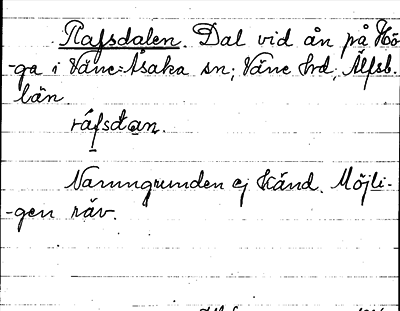 Rafsdalen. Dal vid ån på Hö-
-ga i Väne-Åsaka sn; Väne Hrd; Älfsb.
län.
ráfsdan.
Namngrunden ej känd. Möjli-
-gen räv.